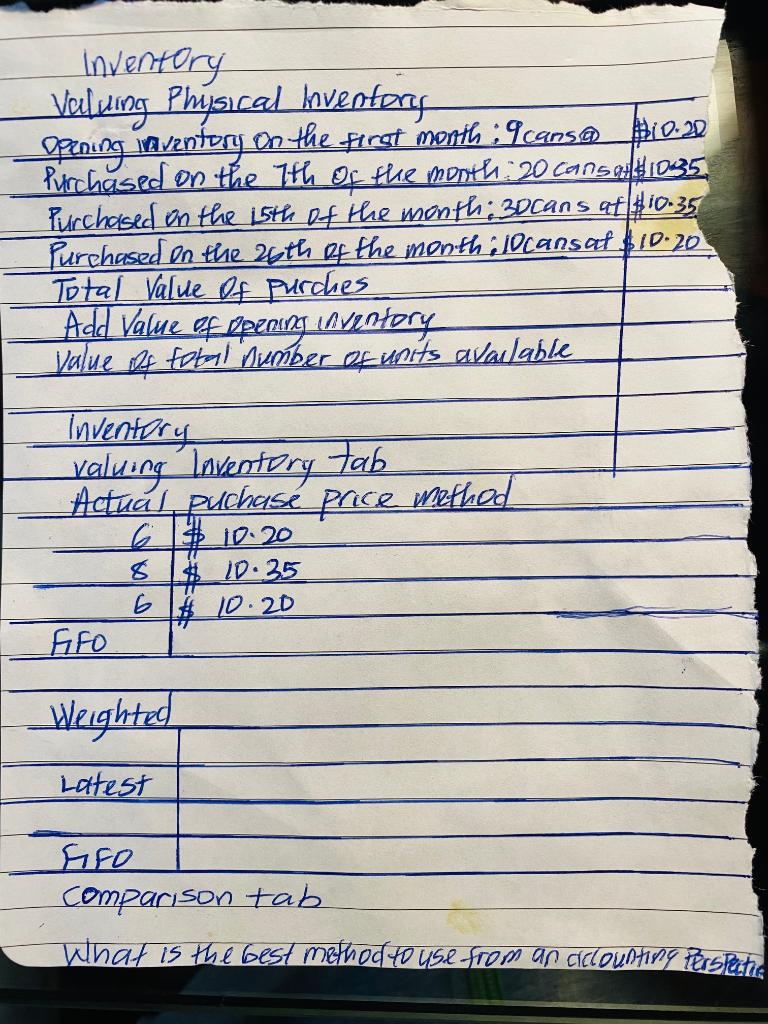 Inventory
Valuing Physical Inventory
Opening inventory on the first month : 9 cans @ $10.20
Purchased on the 7th of the month : 20 cans at $10.35
Purchased on the 15th of the month : 30 cans at $10.35
Purchased on the 26th of the month : 10 cans at $10.20
Total Value of purches
Add Value of opening inventory
Value of total number of units available
Inventory
valuing Inventory tab
Actual puchase price method
6 $ 10.20
8 $ 10.35
6 $ 10.20
FiFO
Weighted
Latest
FiFO
Comparison tab
What is the best method to use from an accounting Perspective